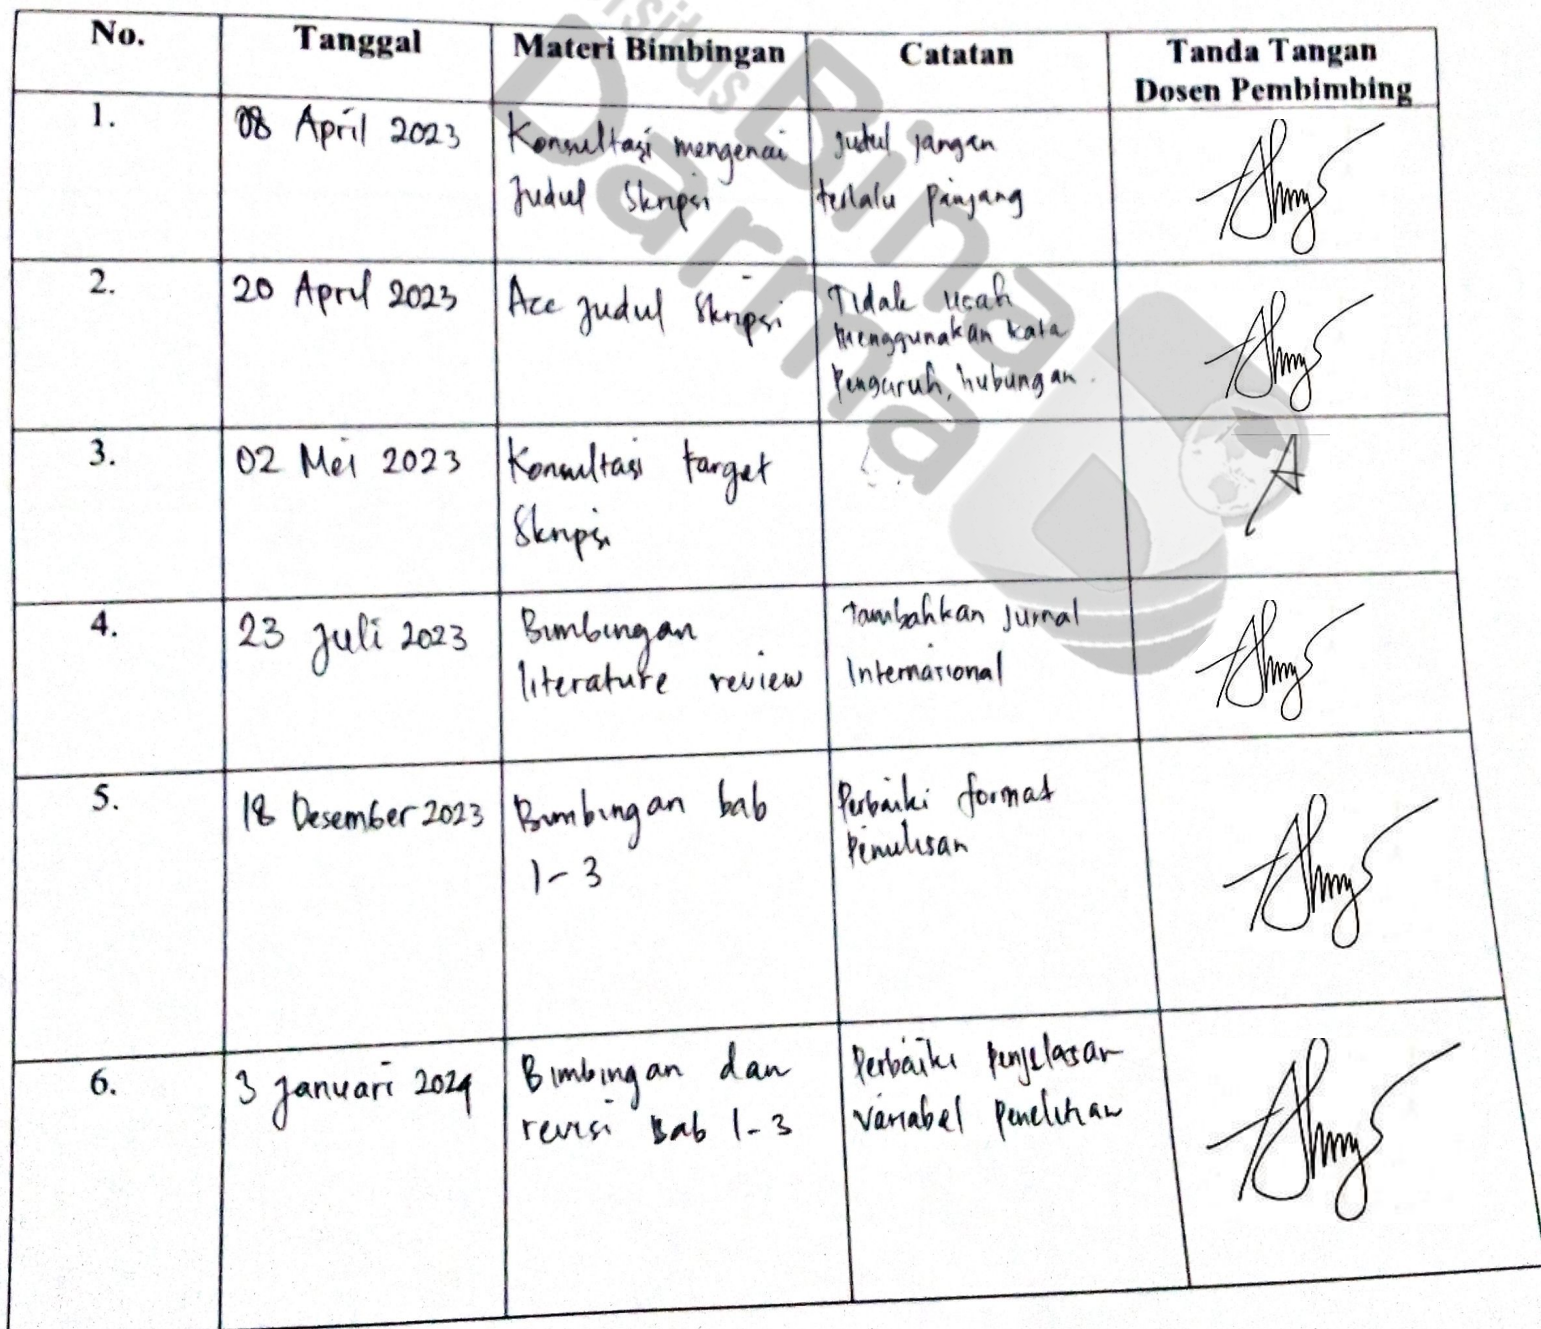 No. Tanggal Materi Bimbingan Catatan Tanda Tangan
Dosen Pembimbing
1. 08 April 2023 Konsultasi mengenai Judul jangan
Judul Skripsi terlalu panjang
2. 20 April 2023 Acc Judul Skripsi Tidak usah
menggunakan kata
Pengaruh, hubungan.
3. 02 Mei 2023 Konsultasi target
Skripsi
4. 23 Juli 2023 Bimbingan Tambahkan Jurnal
literature review Internasional
5. 18 Desember 2023 Bimbingan bab Perbaiki format
1-3 Penulisan
6. 3 Januari 2024 Bimbingan dan Perbaiki Penjelasan
revisi Bab 1-3 Variabel Penelitian
Bina
Darma